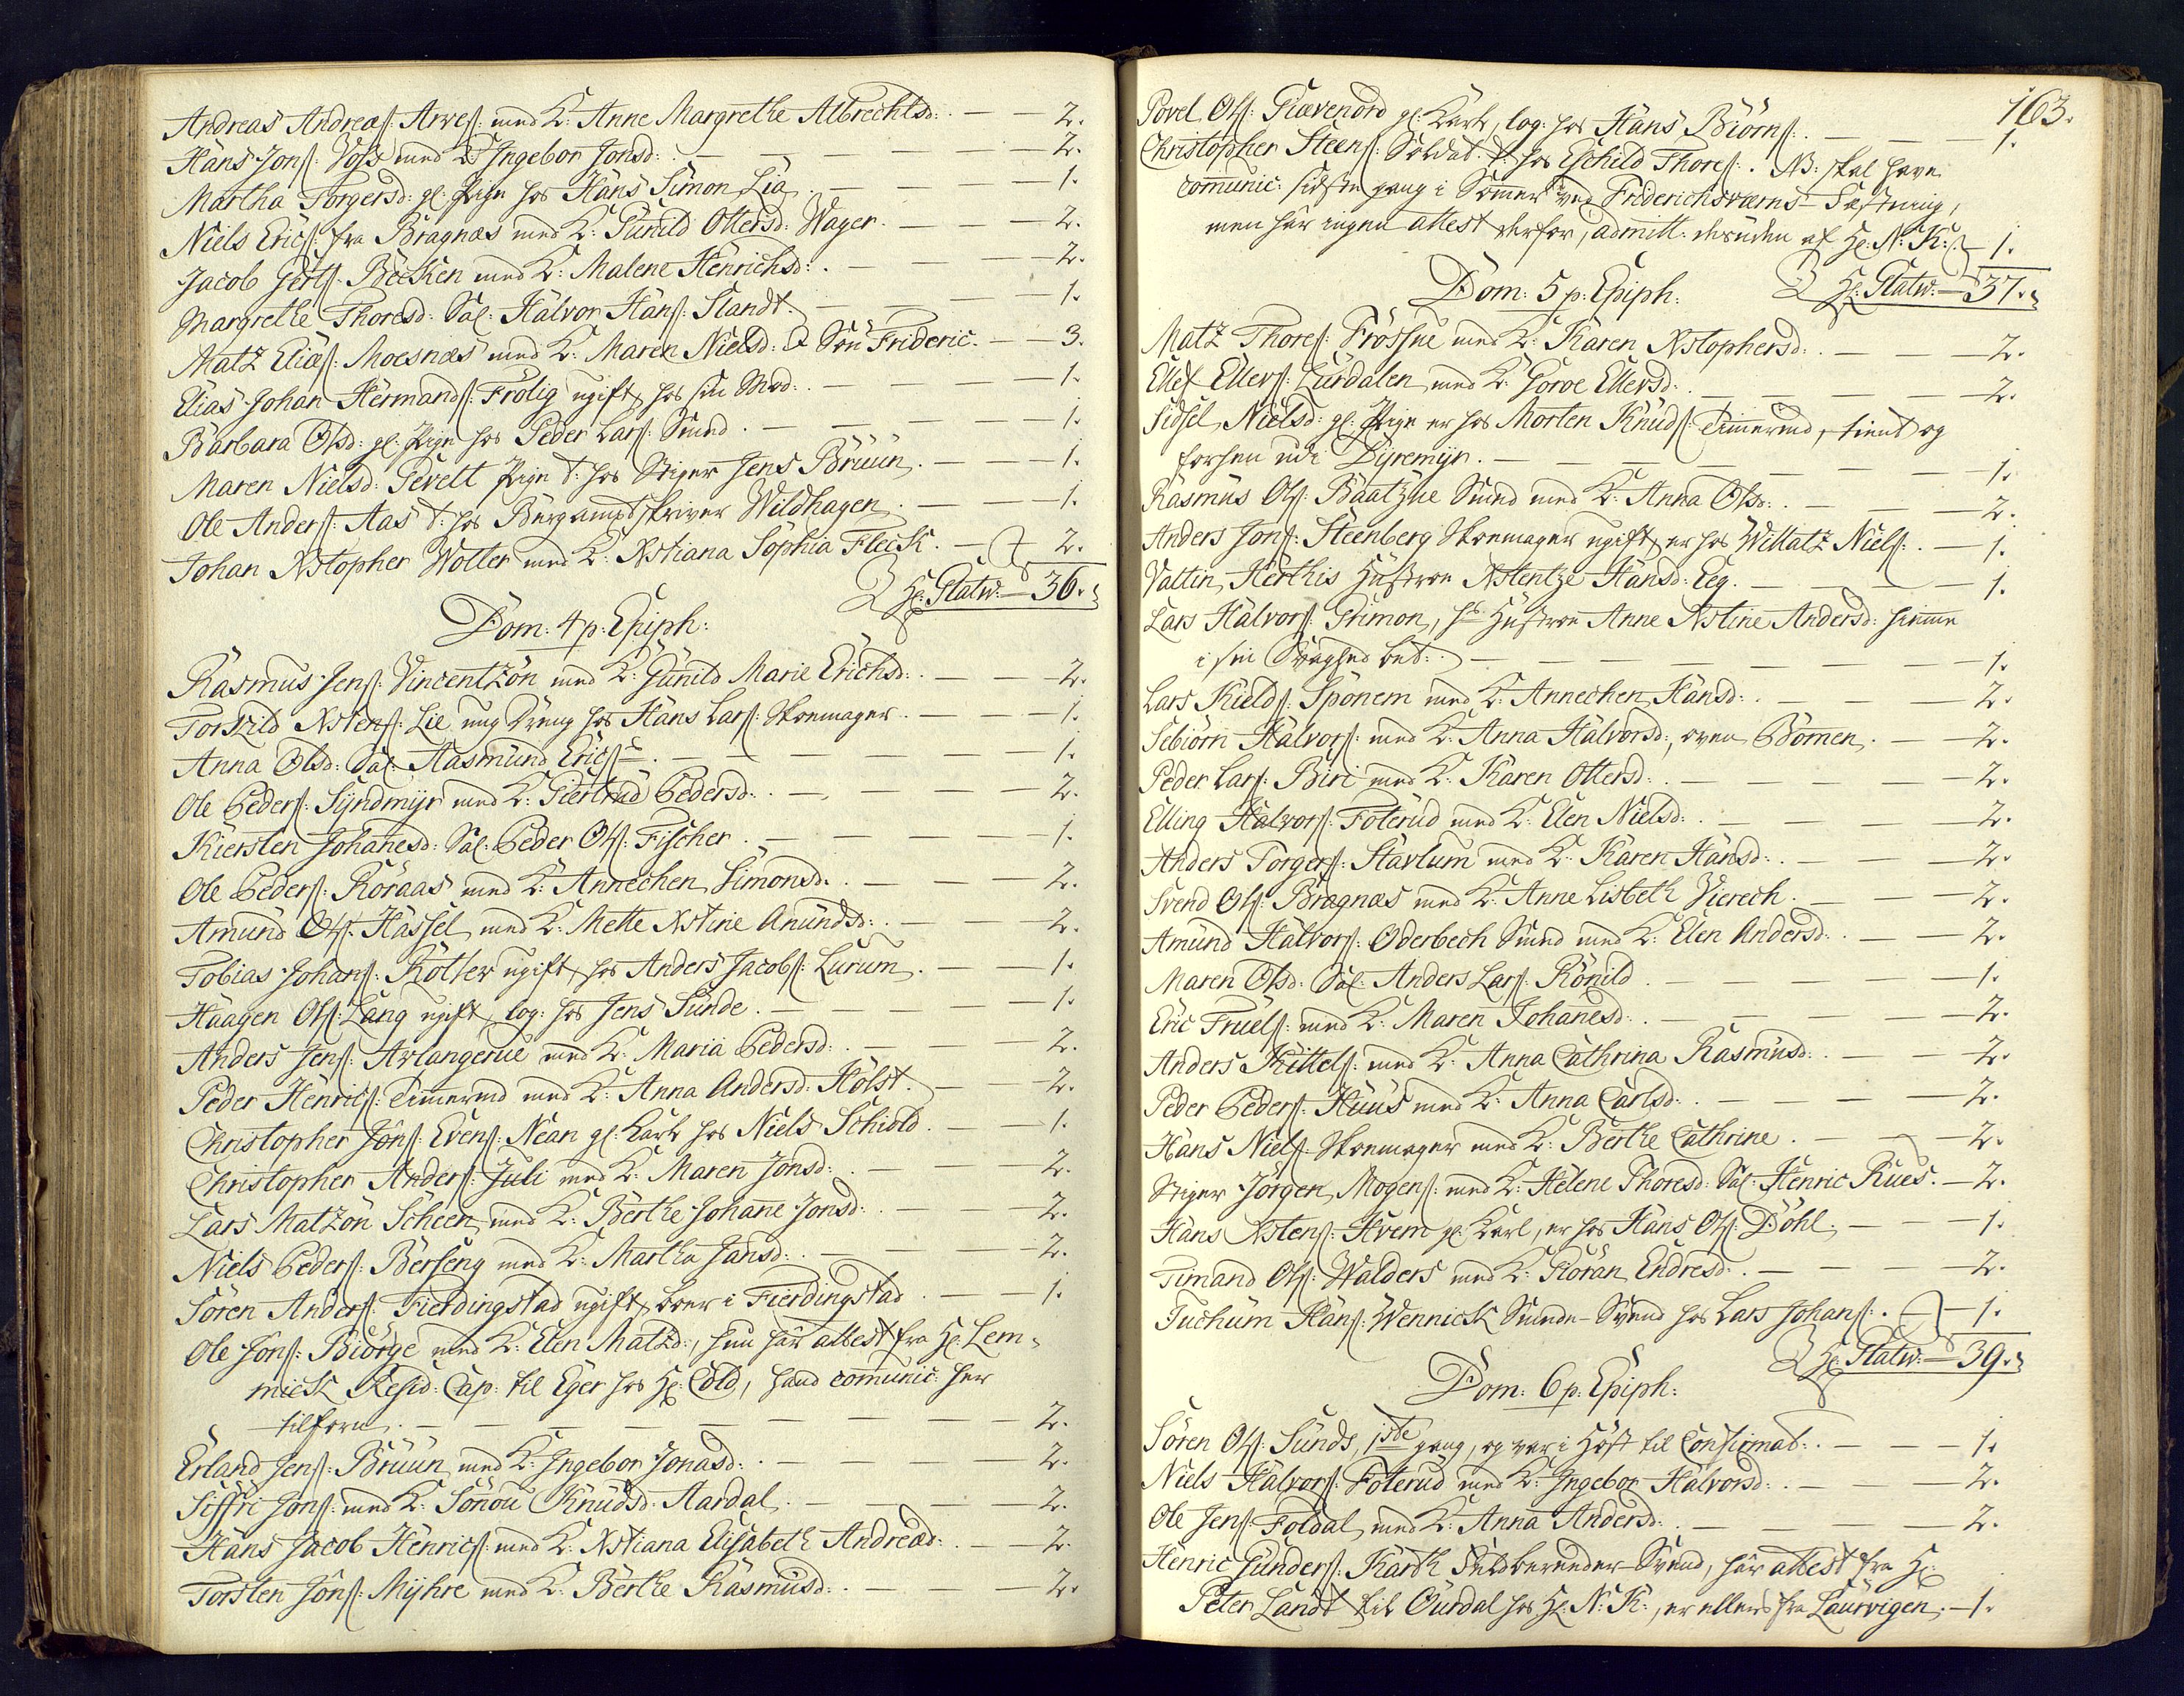 Andreas Andreæs: Arves: med K: Anne Margrethe Albrechtsd: . — — 2.
Hans Jons: Voss med K: Ingebor Jonsd: . — — — — 2.
Martha Torgersd: gl: Pige hos Hans Simon Lia . — — — 1.
Niels Erics: fra Bragnæs med K: Gunild Ottersd: Wager . — — 2.
Jacob Gerts: Becken med K: Malene Henrichsd: . — — — 2.
Margrethe Thoresd: Sal: Halvor Hans: Standt . — — — 1.
Matz Eliæs: Moesnæs med K: Maren Nielsd: & Søn Frideric . — — 3.
Elias Johan Hermands: Frolig ugift, hos sin Mod: . — — — 1.
Barbara Olsd: gl: Pige hos Peder Lars: Smed . — — — 1.
Maren Nielsd: Gevelt Pige t: hos Stiger Jens Bruun . — — — 1.
Ole Anders: Aas t: hos Bergamptskriver Wildhagen . — — 1.
Johan Xstopher Wolter med K: Xstiana Sophia Fleisk . — 2.
Hr: Statw: — 36.
Dom: 4 p: Epiph:
Rasmus Jens: Vincentzøn med K: Gunild Marie Erichsd: . — — 2.
Torkild Xstens: Lie ung Dreng hos Hans Lars: Skomager . — — 1.
Anna Olsd: Sal: Aasmund Erics: . — — — 1.
Ole Peders: Syndmyr med K: Giertrud Pedersd: . — — — 2.
Kiersten Johanesd: Sal: Peder Ols: Fischer . — — — 1.
Ole Peders: Røraas med K: Annechen Simonsd: . — — — 2.
Amund Ols: Hassel med K: Mette Xstine Anundsd: . — — 2.
Tobias Johans: Rotter ugift, hos Anders Jacobs: Lurum . — — 1.
Haagen Ols: Lang ugift, log: hos Jens Sunde . — — — 1.
Anders Jens: Arlangerue med K: Maria Pedersd: . — — 2.
Peder Henrics: Timermd med K: Anna Andersd: Holst . — — 2.
Christopher Jons: Evens: Nean gl: Karl hos Niels Schiold . — 1.
Christopher Anders: Juli med K: Maren Jonsd: . — — 2.
Lars Matzøn Scheen med K: Berthe Johane Jonsd: . — — 2.
Niels Peders: Berseng med K: Martha Jansd: . — — — 2.
Søren Anders: Fierdingstad ugift, boer i Fierdingstad . — — 1.
Ole Jons: Biørge med K: Elen Matzd:, hun har attest fra Hr: Lem-
mick Resid: Cap: til Eger hos Hr: Cold, hand com̄unic: her
tilforn . — — — — — 2.
Erland Jens: Bruun med K: Ingebor Jonasd: . — — — 2.
Siffri Jons: med K: Sønou Knudsd: Aardal . — — — 2.
Hans Jacob Henrics: med K: Xstiana Elisabeth Andreæd: . — 2.
Torsten Jons: Myhre med K: Berthe Rasmusd: . — — — 2.
163.
Povel Ols: Grævenord gl: Karl, log: hos Hans Biørns: . — — 1.
Christopher Steens: Soldat t: hos Eschild Thores: . NB: skal have
com̄unic: sidste gang i Som̄er ved Friderichsværns Fæstning,
men har ingen attest derfor, admitt: desuden af Hr: N: K: — 1.
Hr: Statw: — 37.
Dom: 5 p: Epiph:
Matz Thores: Frossue med K: Karen Xstophersd: . — — — 2.
Ellef Ellevs: Lurdalen med K: Gorve Ellevsd: . — — — 2.
Sidsel Nielsd: gl: Pige er hos Morten Knuds: Timermd, tient og
forhen udi Dyremyr . — — — — 1.
Rasmus Ols: Baatzue Smed med K: Anna Olsd: . — — 2.
Anders Jons: Steenberg Skomager ugift, er hos Willatz Niels: . — 1.
Valtin Herthis Hustroe Xstentze Hansd: Eeg . — — — 1.
Lars Halvors: Grimon, hs: Hustroe Anne Xstine Andersd: hiemme
i sin Svaghed bet: . — — — — 1.
Lars Kields: Sponem med K: Annechen Hansd: . — — — 2.
Sebiørn Halvors: med K: Anna Halvorsd:, oven Bommen . — 2.
Peder Lars: Biri med K: Karen Ottersd: . — — — 2.
Elling Halvors: Foterud med K: Elen Nielsd: . — — — 2.
Anders Torgers: Stavlum med K: Karen Hansd: . — — 2.
Svend Ols: Bragnæs med K: Anne Lisbeth Vierech . — — 2.
Amund Halvors: Oderbech Smed med K: Elen Andersd: . — — 2.
Maren Olsd: Sal: Anders Lars: Ronild . — — — 1.
Eric Truels: med K: Maren Johanesd: . — — — 2.
Anders Kittels: med K: Anna Cathrina Rasmusd: . — — 2.
Peder Peders: Huus med K: Anna Carlsd: . — — — 2.
Hans Niels: Skomager med K: Berthe Cathrine . — — 2.
Stiger Jørgen Mogens: med K: Helene Thoresd: Sal: Henric Rues . — 2.
Hans Xstens: Hvem gl: Karl, er hos Hans Ols: Dohl . — — 1.
Timand Ols: Walders med K: Goran Endresd: . — — 2.
Tuchum Hans: Wennick Smede-Svend hos Lars Johans: . — 1.
Hr: Statw: — 39.
Dom: 6 p: Epiph:
Søren Ols: Sunds, 1ste gang, og var i Høst til Confirmat: . — — 1.
Niels Halvors: Foterud med K: Ingebor Halvorsd: . — — 2.
Ole Jens: Foldal med K: Anna Andersd: . — — — 2.
Henric Gunders: Karth Feldbereder-Svend, har attest fra Hr:
Peter Landt til Ourdal hos Hr: N: K:, er ellers fra Laurvigen . — 1.